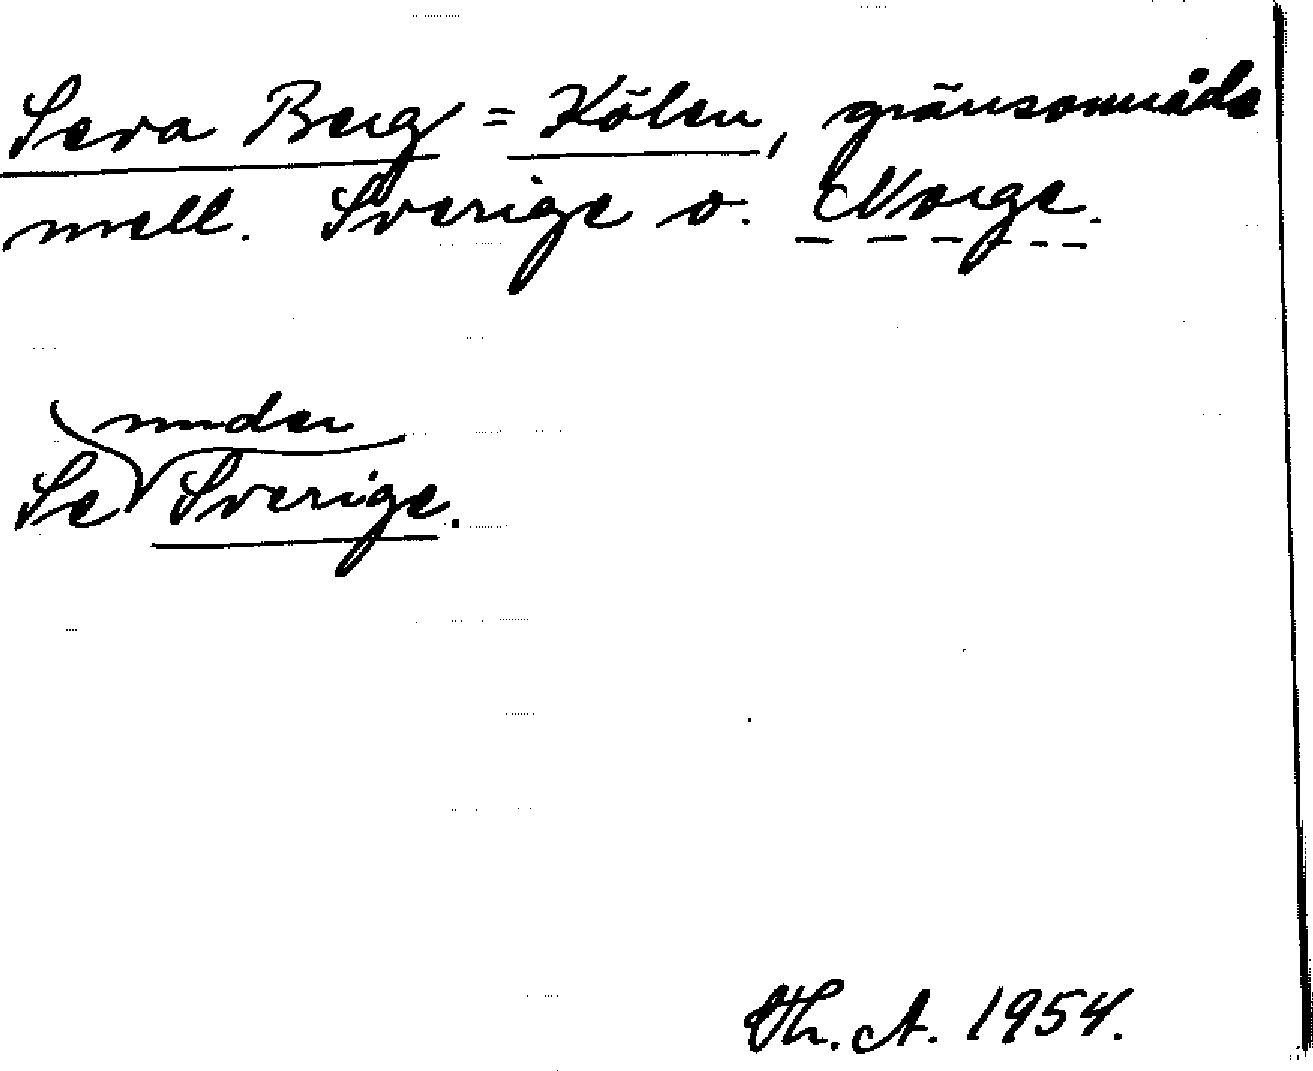 Seva Berg = Kölen, gränsområde
mell. Sverige o. Norge.
under
Se Sverige.
Th. A. 1954.